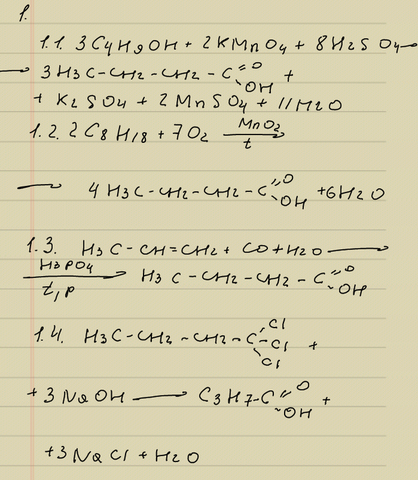 1.
1.1. 3C4H9OH + 2KMnO4 + 8H2SO4 →
→ 3H3C-CH2-CH2-C=O OH +
+ K2SO4 + 2MnSO4 + 11H2O
1.2. 2C8H18 + 7O2 MnO2 t
→ 4H3C-CH2-CH2-C=O OH + 6H2O
1.3. H3C-CH=CH2 + CO + H2O →
H3PO4 t,p → H3C-CH2-CH2-C=O OH
1.4. H3C-CH2-CH2-C Cl Cl Cl +
+ 3NaOH → C3H7-C=O OH +
+3NaCl + H2O